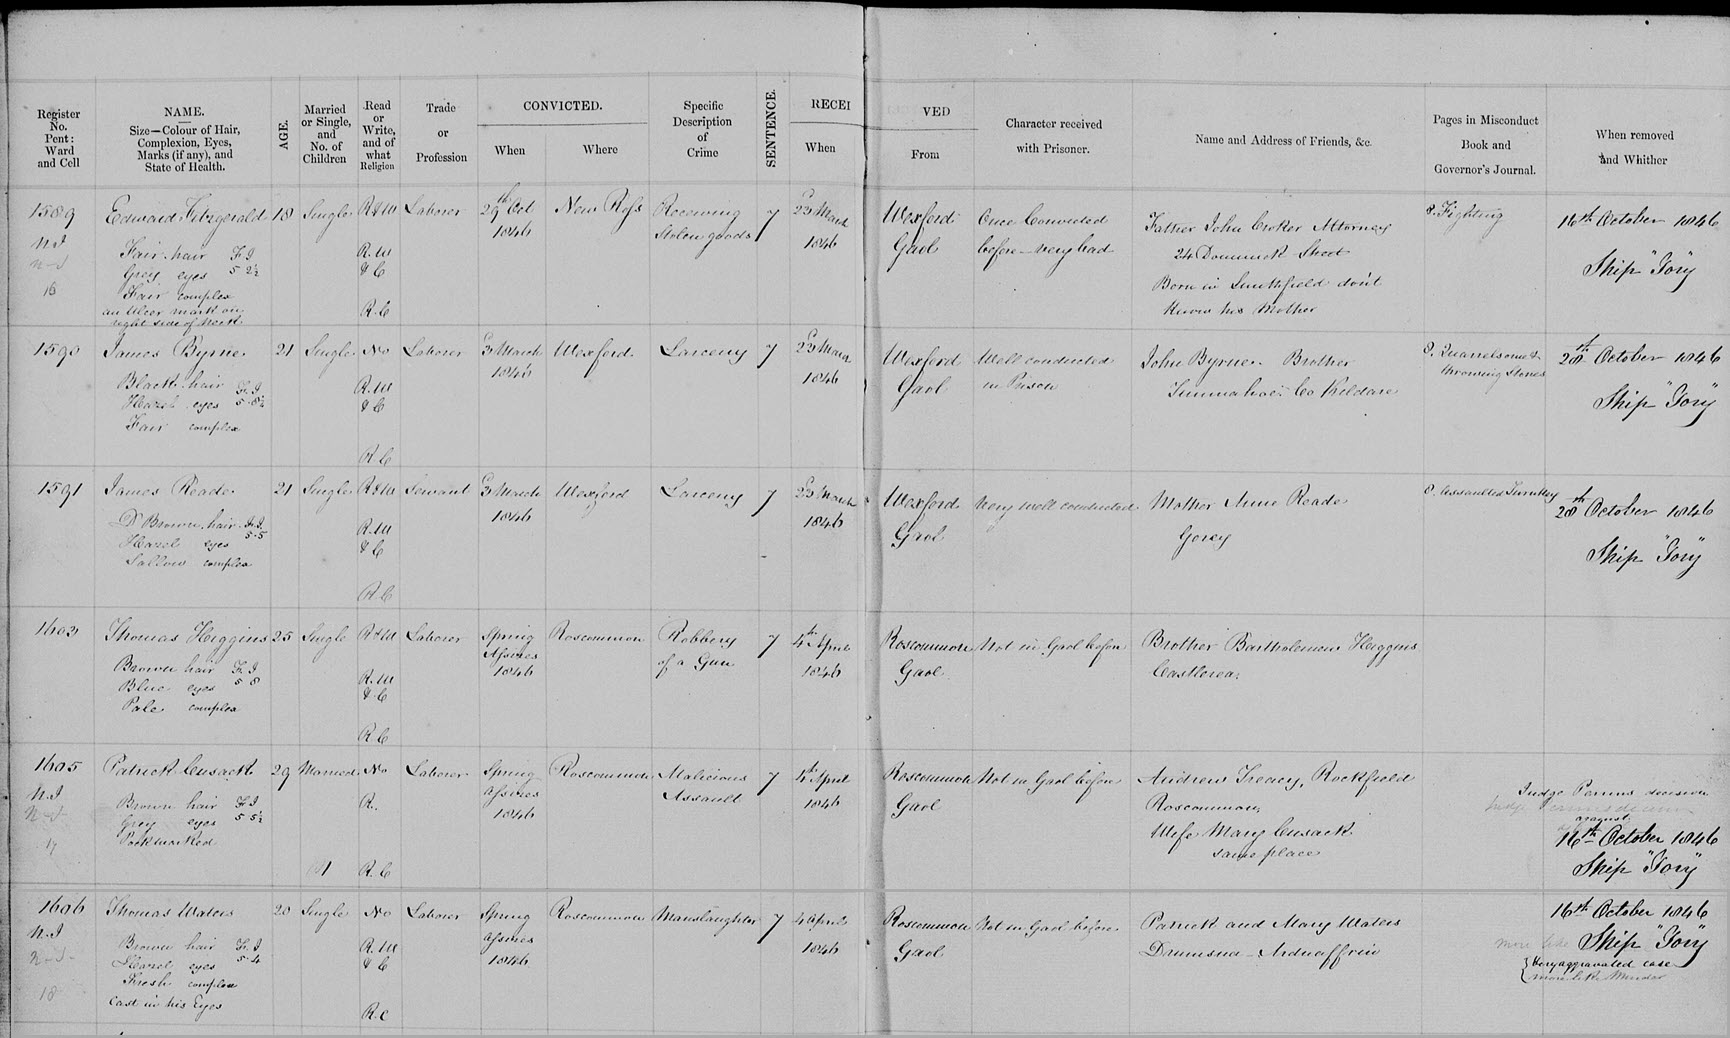 Register No. Pent: Ward and Cell
NAME.
Size—Colour of Hair, Complexion, Eyes, Marks (if any), and State of Health.
AGE.
Married or Single, and No. of Children
Read or Write, and of what Religion
Trade or Profession
CONVICTED.
When
Where
Specific Description of Crime
SENTENCE.
RECEI
When
VED
From
Character received with Prisoner.
Name and Address of Friends, &c.
Pages in Misconduct Book and Governor's Journal.
When removed and Whither
1589
N.I
16
Edward Fitzgerald
Fair hair Ft. I
Grey eyes 5 2½
Fair complex
an Ulcer mark on
right side of Neck
18
Single
R & W
R. W
& C
R. C
Laborer
29th Oct
1846
New Ross
Receiving
Stolen goods
7
23 March
1846
Wexford
Gaol
Once Convicted
before - very bad
Father John Croker Attorney
24 Dominick Street
Born in Smithfield don't
Know his Mother
8. Fighting
16th October 1846
Ship "Tory"
1590
James Byrne
Black hair Ft. I
Hazel eyes
Fair complex
21
Single
No
R. W
& C
R C
Laborer
3 March
1846
Wexford
Larceny
7
23 March
1846
Wexford
Gaol
Well conducted
in Prison
John Byrne Brother
Timmahoe Co Kildare
8. Quarrelsome &
throwing Stones
28th October 1846
Ship "Tory"
1591
James Reade
Dk Brown hair Ft. I
Hazel eyes 5-5
Sallow complex
21
Single
R & W
R. W
& C
R C
Servant
3 March
1846
Wexford
Larceny
7
23 March
1846
Wexford
Gaol
Very well conducted
Mother Anne Reade
Gorey
8. Assaulted Turnkey
28th October 1846
Ship "Tory"
1603
Thomas Higgins
Brown hair Ft. I
Blue eyes 5 8
Pale complex
25
Single
R & W
R. W
& C
R C
Laborer
Spring
Assizes
1846
Roscommon
Robbery
of a Gun
7
4th April
1846
Roscommon
Gaol
Not in Gaol before
Brother Bartholomew Higgins
Castlerea
1605
N.I
17
Patrick Cusack
Brown hair Ft. I
Grey eyes 5 5½
Pockmarked
29
Married
No
R.
R. C
Laborer
Spring
Assizes
1846
Roscommon
Malicious
Assault
7
4th April
1846
Roscommon
Gaol
Not in Gaol before
Andrew Treacy, Rockfield
Roscommon,
Wife Mary Cusack
same place
Judge Perrins decision
against
16th October 1846
Ship "Tory"
1606
N.I
18
Thomas Waters
Brown hair Ft. I
Hazel eyes 5-4
Fresh complex
Cast in his Eyes
20
Single
No
R. W
& C
R.C
Laborer
Spring
Assizes
1846
Roscommon
Manslaughter
7
4 April
1846
Roscommon
Gaol
Not in Gaol before
Patrick and Mary Waters
16th October 1846
more like
Ship "Tory"
Very aggravated case
more like Murder